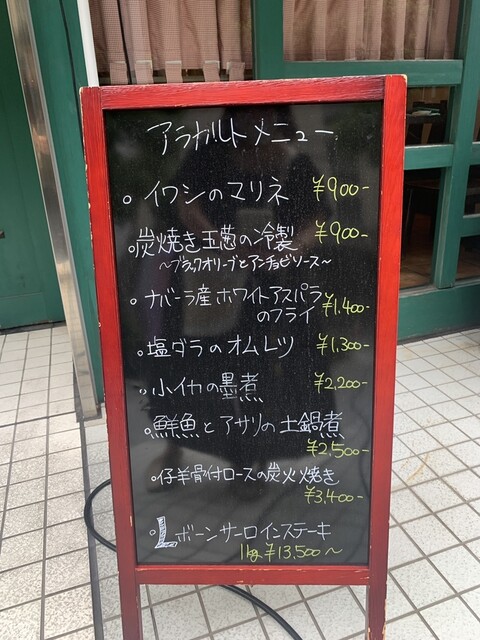 アラカルトメニュー
。イワシのマリネ ¥900-
。炭焼き玉葱の冷製 ¥900-
〜ブラックオリーブとアンチョビソース〜
。ナバーラ産ホワイトアスパラ
のフライ ¥1,400-
。塩ダラのオムレツ ¥1,300-
。小イカの墨煮 ¥2,200-
。鮮魚とアサリの土鍋煮
¥2,500-
。仔羊骨付ロースの炭火焼き
¥3,400-
。Lボーンサーロインステーキ
1kg ¥13,500〜